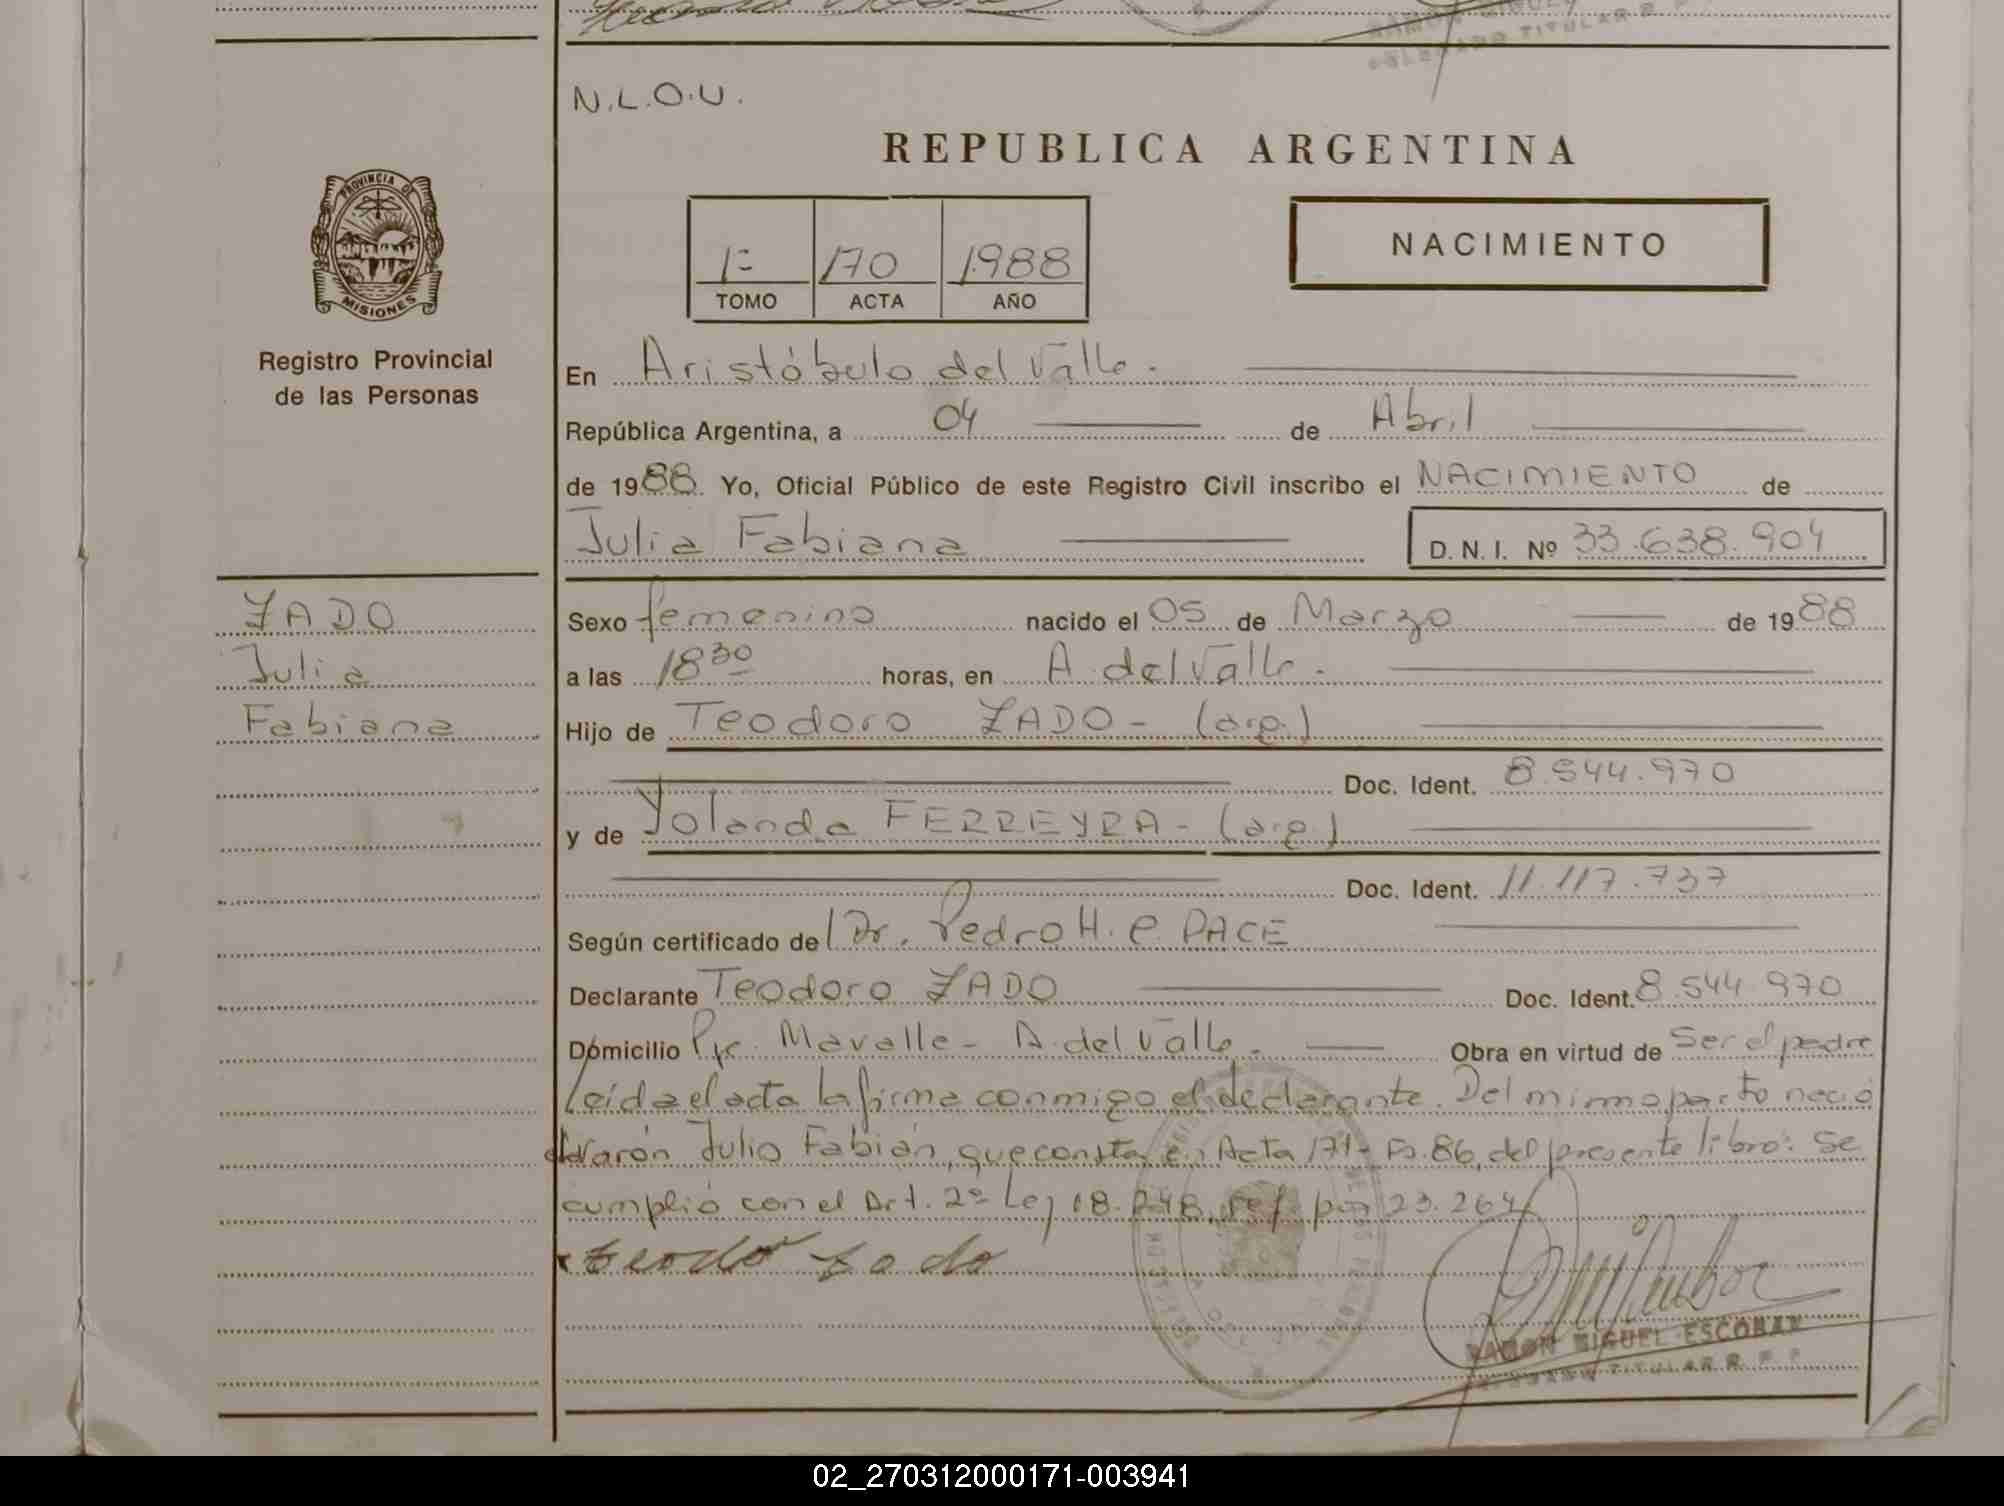 N.L.O.U.
REPUBLICA ARGENTINA
PROVINCIA DE
MISIONES
Registro Provincial
de las Personas
1º 170 1988
TOMO ACTA AÑO
NACIMIENTO
En Aristóbulo del Valle.
República Argentina, a 04 de Abril
de 1988. Yo, Oficial Público de este Registro Civil inscribo el NACIMIENTO de
Julia Fabiana D.N.I. Nº 33.638.904
ZADO
Julia
Fabiana
Sexo femenino nacido el 05 de Marzo de 1988
a las 18 30 horas, en A. del Valle.
Hijo de Teodoro ZADO - (arg.)
Doc. Ident. 8.544.970
y de Yolanda FERREYRA - (arg.)
Doc. Ident. 11.117.737
Según certificado de Dr. Pedro H. PACE
Declarante Teodoro ZADO Doc. Ident. 8.544.970
Domicilio Mavalle - A. del Valle. Obra en virtud de Ser el padre
Leída el acta la firma conmigo el declarante. Del mismo parto nació
Varón Julio Fabián, que consta en Acta 171 - Fo. 86, del presente libro: Se
cumplió con el Art. 2º Ley 18.248, por 23.264
RAMON MIGUEL ESCOBAR
DELEGADO TITULAR R. P. P.
02_270312000171-003941